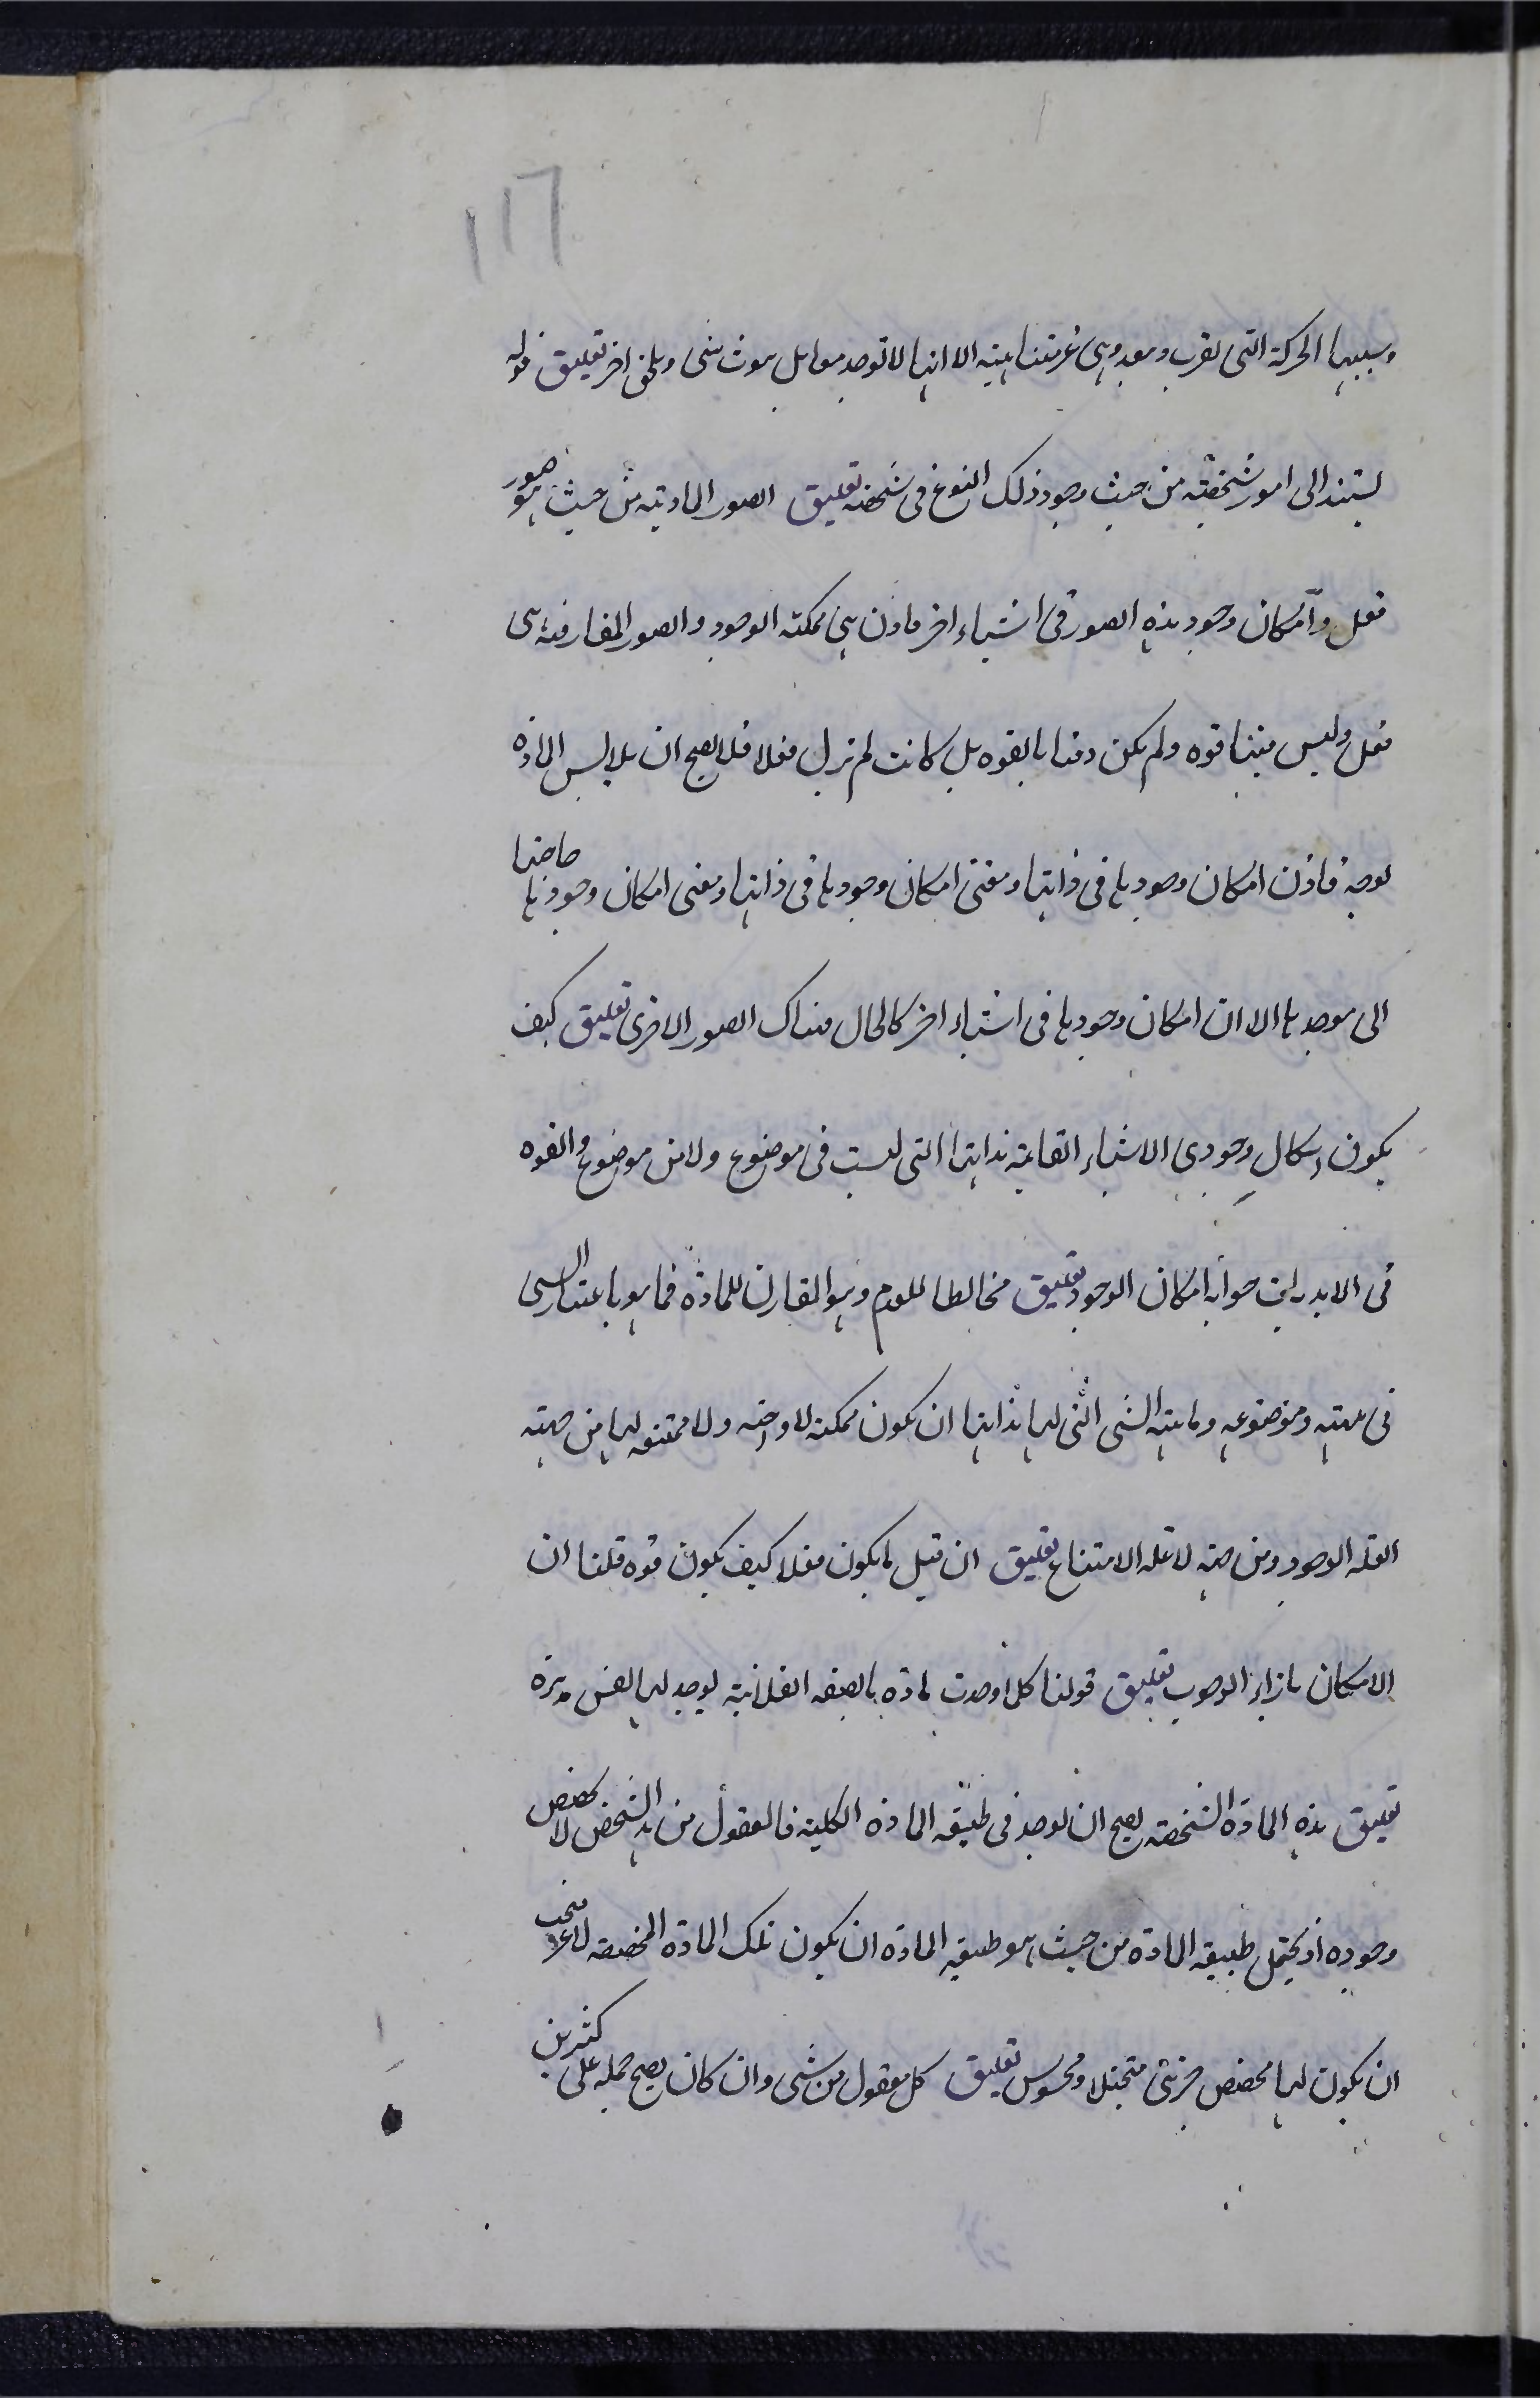 ١١٦
وسببها الحركة التى تقرب وتبعد وهى غير متناهية الا انها لا توجد معا بل يموت شى ويلحق اخر تعليق قوله
يستند الى امور شخصية من حيث وجود ذلك النوع فى شخصه تعليق الصور المادية من حيث هو صور
فعل وامكان وجود هذه الصور فى اشياء اخر فاذن هى ممكنة الوجود والصور المفارقة هى
فعل وليس فيها قوه ولم يكن وقتا بالقوه بل كانت لم تزل فعلا فلا يصح ان يلابس المادة
بوجه فاذن امكان وجودها فى ذاتها ومعنى امكان وجودها فى ذاتها ومعنى امكان وجودها حاجتها
الى موجدها الا ان امكان وجودها فى اشياء اخر كالحال هناك الصور الاخرى تعليق كيف
يكون وجودى الاشياء القائمة بذاتها التى ليست فى موضوع ولا من موضوع والقوه
فى جوابه امكان الوجود تعليق مخالطا للعدم وهو المقارن للمادة فما هو باعتبار الشى
فى مهيته وموضوعه وماهية الشى التى لها بذاتها ان يكون ممكنة لا واجبه ولا ممتنعه لها من جهته
العله الوجود ومن جهته لا علة الامتناع تعليق ان قيل ما يكون فعلا كيف يكون قوه قلنا ان
الامكان بازاء الوجوب تعليق قولنا كل ما وجدت مادة بالصفه الفلانية يوجد لها نفس مدبرة
تعليق هذه المادة الشخصه يصح ان يوجد فى طبيعة المادة الكلية فالمعقول من هذا الشخص لا يخصص
وجوده اذ يحتمل طبيعة المادة من حيث هو طبيعة المادة ان يكون تلك المادة المخصصه لا غير فيجب
ان يكون لها مخصص جزئى متخيلا ومحسوس تعليق كل معقول من شى وان كان يصح حمله على كثيرين